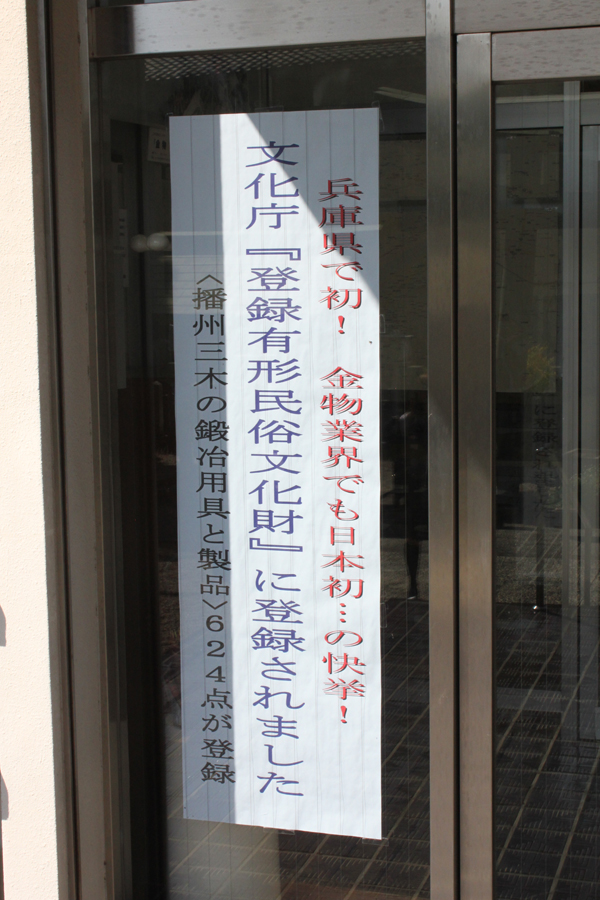 兵庫県で初！　金物業界でも日本初…の快挙！
文化庁『登録有形民俗文化財』に登録されました
〈播州三木の鍛冶用具と製品〉６２４点が登録